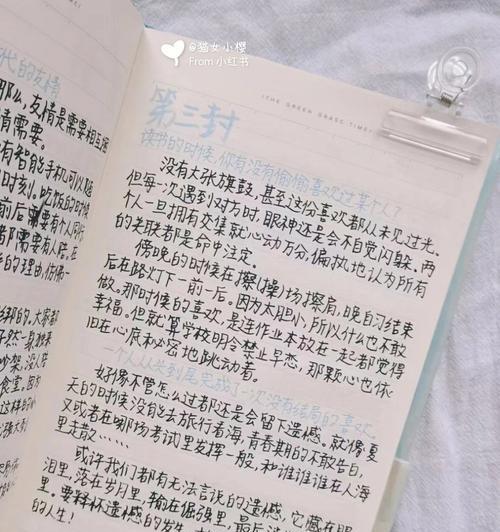 @猫女小樱
From 小红书
代的友情
那么,友情是需要相互
情需要。
有智能手机可以
时刻。吃饭的时候
前后需要有个人
都需要有人陪。在
的理由,
绑的。大家都
吵架。没人陪
食堂。因为
这样的
THE GREEN GRASS TIME
第三封
读书的时候,你有没有偷偷喜欢过某个人?
没有大张旗鼓,甚至这份喜欢都从未见过光。
但每一次遇到对方时,眼神还是会不自觉闪躲。两
个人一旦拥有交集就心动万分,偏执地认为所有
的关联都是命中注定。
傍晚的时候在擦(操)场擦肩,晚自习结束
后在路灯下一前一后。因为太胆小,所以什么也不敢
做。那时候的喜欢,是连作业本放在一起都觉得
幸福。但就算学校明令禁止早恋,那颗心也依
旧在心底秘密地跳动着。
一个人从头到尾完成了一次没有结局的喜欢。
好像不管怎么过都还是会留下遗憾。就像夏
天的时候没能去旅行看海,青春期的不敢告白,
又或者在哪场考试里发挥一般,和谁谁谁在人海
里走散……
或许我们都有无法言说的遗憾,它藏在眼
泪里,落在岁月里,输在倔强里,最后
的人生!